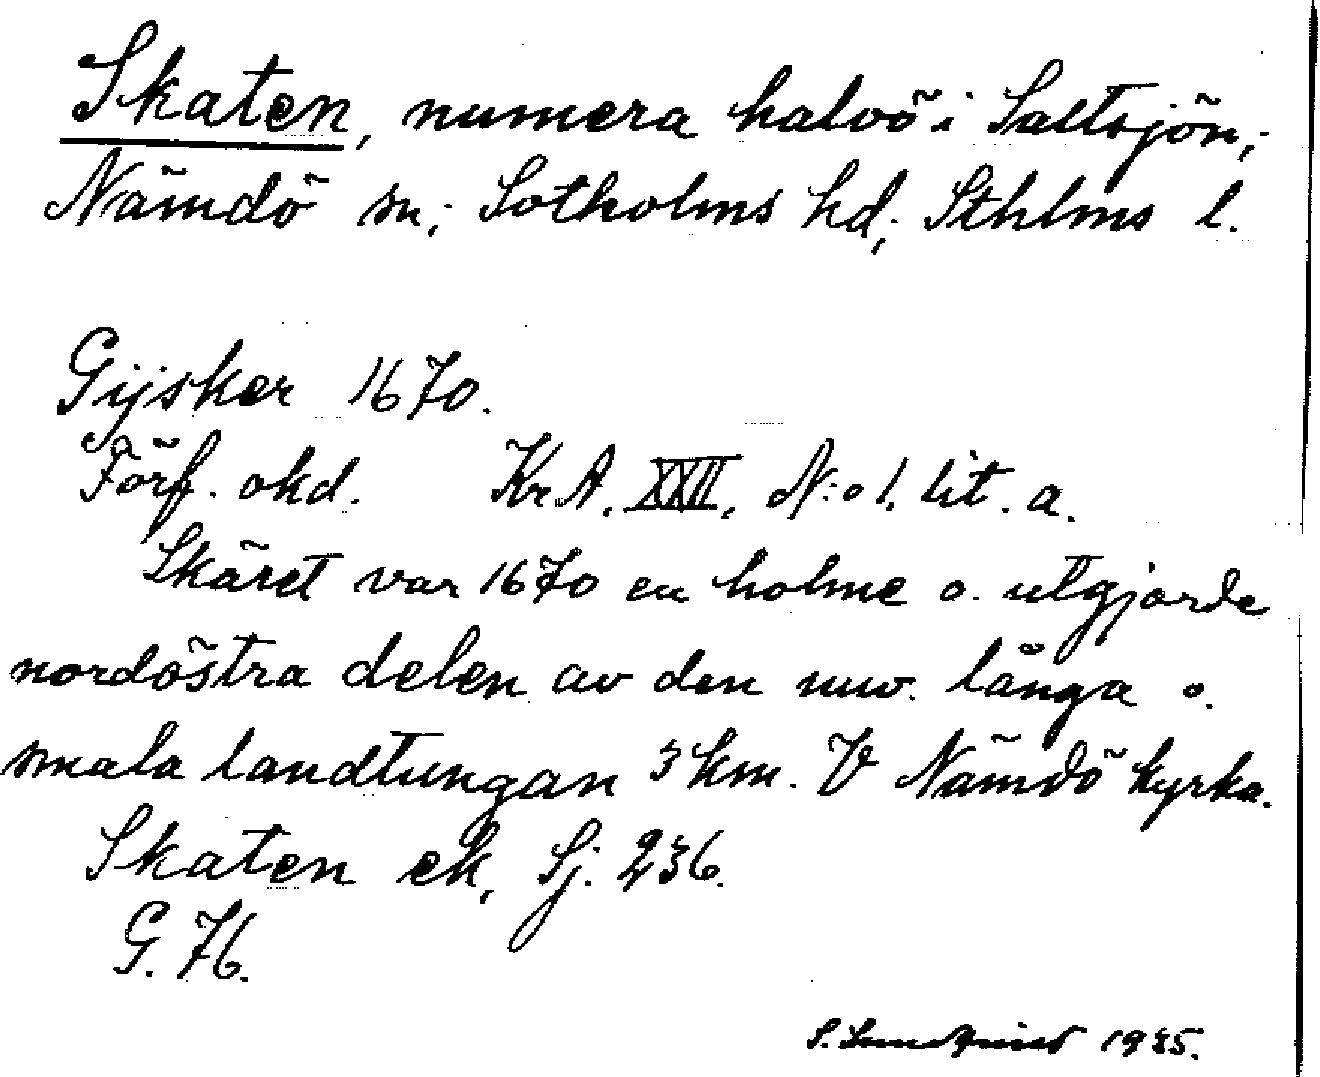 Skaten, numera halvö i Saltsjön,
Nämdö sn; Sotholms hd; Sthlms l.
Gijsker 1670.
Förf. okd. Kr A. XXII, N:o 1. lit. a.
Skäret var 1670 en holme o. utgjorde
nordöstra delen av den nuv. långa o.
smala landtungan 3 km. V Nämdö kyrka.
Skaten ek, Sj. 236.
G. 76.
S. Lundquist 1935.